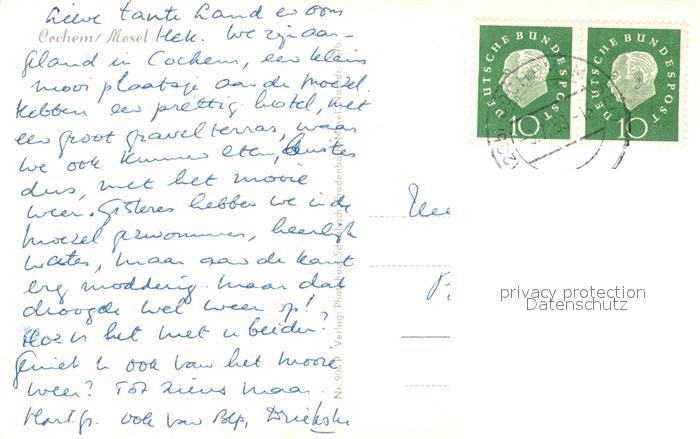 Lieve tante Land en oom
Cochem/Mosel
Hek. We zijn aan-
geland in Cochem, een klein
mooi plaatsje aan de Moezel.
Hebben een prettig hotel, met
een groot gravel terras, waar
we ook kunnen eten,
dus, met het mooie
weer. Gisteren hebben we in de
Moezel gezwommen, heerlijk
water, maar aan de kant
erg modderig. Maar dat
droogde wel weer op!
Hoe is het met u beiden?
Geniet u ook van het mooie
weer? Tot ziens maar.
Hart. gr. ook van
DEUTSCHE BUNDESPOST
10
DEUTSCHE BUNDESPOST
10
privacy protection
Datenschutz